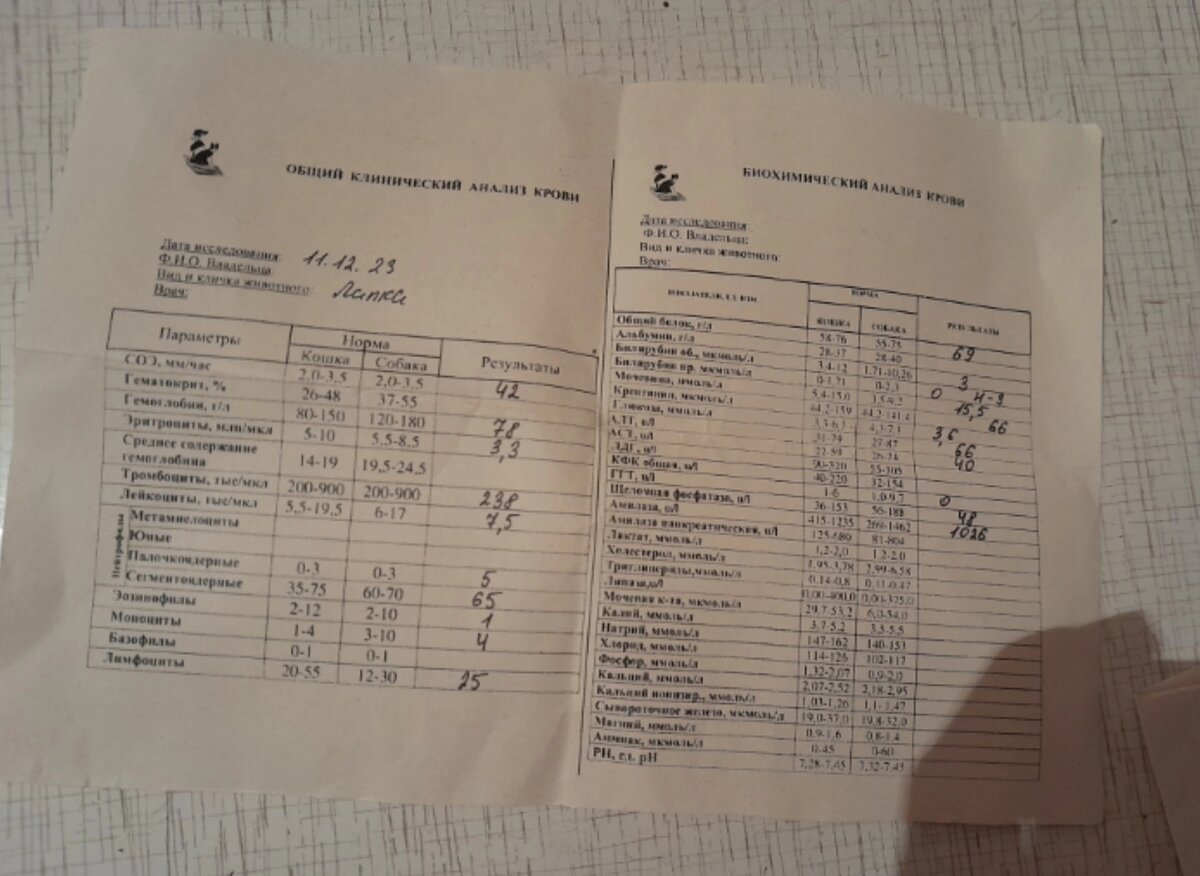 ОБЩИЙ КЛИНИЧЕСКИЙ АНАЛИЗ КРОВИ
Дата исследования: 11.12.23
Ф.И.О. Владельца:
Вид и кличка животного: Лапка
Врач:
Параметры Норма Результаты
Кошка Собака
СОЭ, мм/час 2,0-3,5 2,0-3,5 42
Гематокрит, % 26-48 37-55
Гемоглобин, г/л 80-150 120-180 78
Эритроциты, млн/мкл 5-10 5,5-8,5 3,3
Среднее содержание гемоглобина 14-19 19,5-24,5
Тромбоциты, тыс/мкл 200-900 200-900 238
Лейкоциты, тыс/мкл 5,5-19,5 6-17 7,5
Нейтрофилы
Метамиелоциты
Юные
Палочкоядерные 0-3 0-3 5
Сегментоядерные 35-75 60-70 65
Эозинофилы 2-12 2-10 1
Моноциты 1-4 3-10 4
Базофилы 0-1 0-1
Лимфоциты 20-55 12-30 25
БИОХИМИЧЕСКИЙ АНАЛИЗ КРОВИ
Дата исследования
Ф.И.О. Владельца:
Вид и кличка животного:
Врач:
НОРМА РЕЗУЛЬТАТЫ
КОШКА СОБАКА
Общий белок, г/л 58-76 55-75 69
Альбумин, г/л 28-37 28-40
Билирубин об., мкмоль/л 3,4-12 1,71-10,26 3
Билирубин пр. мкмоль/л 0-1,71 0-2,3 0
Мочевина, ммоль/л 5,4-15,0 3,5-9,2 15,5
Креатинин, мкмоль/л 44,2-159 44,2-141,4 66
Глюкоза, ммоль/л 3,3-6,3 4,3-7,3 3,6
АЛТ, u/l 27-87 66
АСТ, u/l 40
ЛДГ, u/l
КФК общая, u/l
ГГТ, u/l 1-6 1,0-9,7 0
Щелочная фосфатаза, u/l 56-188 48
Амилаза, u/l 415-1235 1026
Амилаза панкреатическая, u/l 125-680 81-804
Лактат, ммоль/л 1,2-2,0 1,2-2,0
Холестерол, ммоль/л 1,95-3,78 2,99-6,58
Триглицериды,ммоль/л 0,14-0,8
Липаза,u/l
Мочевая к-та, мкмоль/л
Калий, ммоль/л 3,7-5,2 3,5-5,5
Натрий, ммоль/л 147-162 140-153
Хлорид, ммоль/л 114-126 102-117
Фосфор, ммоль/л 1,32-2,07 0,9-2,0
Кальций, ммоль/л 2,07-2,52 2,18-2,95
Кальций ионизир., ммоль/л 1,03-1,26 1,1-1,47
Сывороточное железо, мкмоль/л 19,0-37,0 19,8-32,0
Магний, ммоль/л 0,9-1,6 0,8-1,4
Аммиак, мкмоль/л 0-45 0-60
РН, ед. рН 7,28-7,45 7,32-7,45